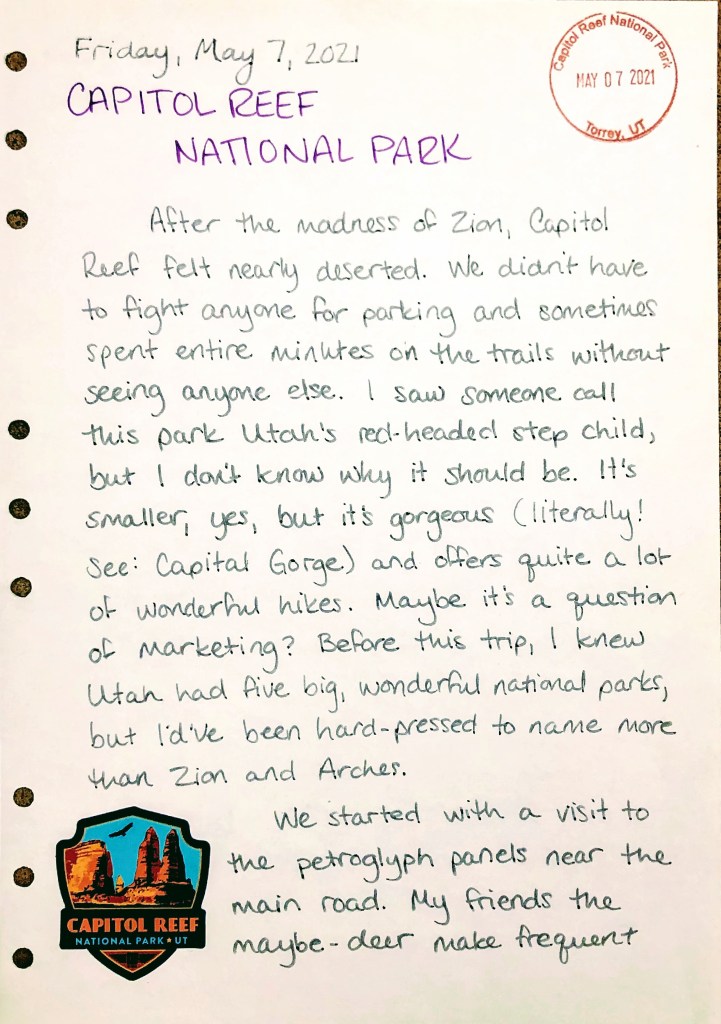 Friday, May 7, 2021
CAPITOL REEF
NATIONAL PARK
Capitol Reef National Park
MAY 07 2021
Torrey, UT
After the madness of Zion, Capitol
Reef felt nearly deserted. We didn't have
to fight anyone for parking and sometimes
spent entire minutes on the trails without
seeing anyone else. I saw someone call
this park Utah's red-headed step child,
but I don't know why it should be. It's
smaller, yes, but it's gorgeous (literally!
See: Capital Gorge) and offers quite a lot
of wonderful hikes. Maybe it's a question
of marketing? Before this trip, I knew
Utah had five big, wonderful national parks,
but I'd've been hard-pressed to name more
than Zion and Arches.
We started with a visit to
the petroglyph panels near the
main road. My friends the
maybe-deer make frequent
CAPITOL REEF
NATIONAL PARK ★ UT